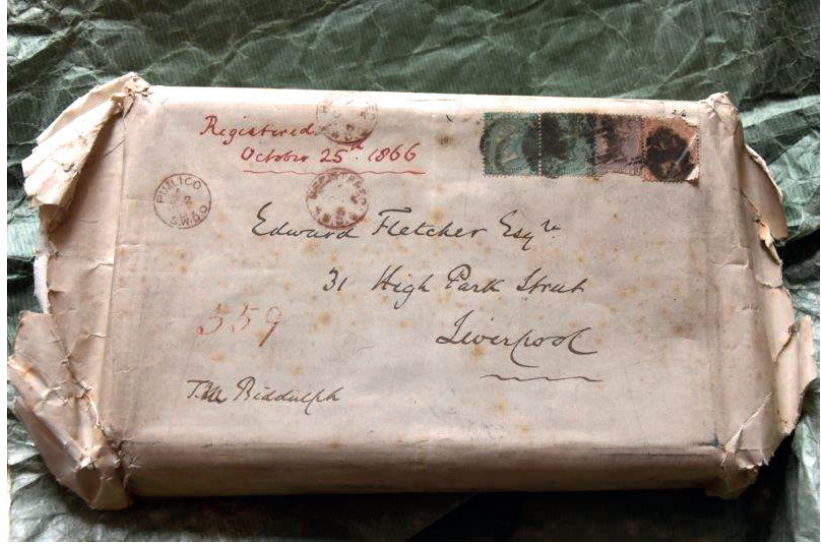 Registered
October 25th 1866
PIMLICO
S.W.D.O
REGISTERED
Edward Fletcher Esqre
31 High Park Street
Liverpool
559
T.M. Biddulph